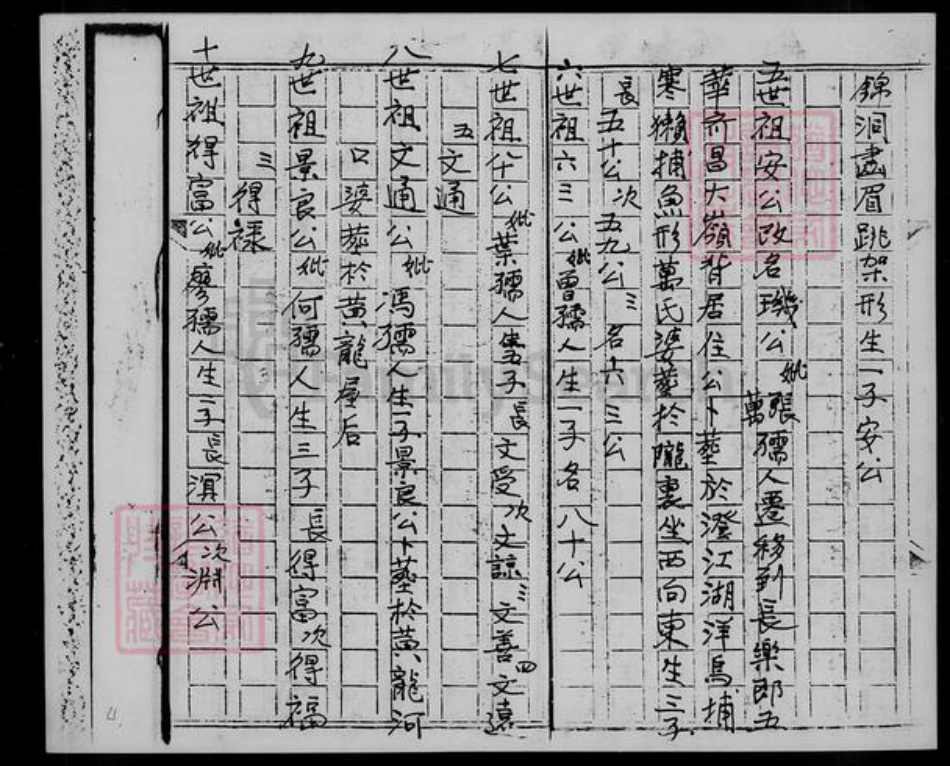 錦洞畵眉跳架形生一子安公
五世祖安公改名璣公妣張萬孺人遷移到長樂郎五
華齐昌大嶺背居住公卜葬於澄江湖洋烏捕
寒獺捕魚形萬氏婆葬於隴裏坐西向東生三子
長五十公次五九公三名六三公
六世祖六三公妣曾孺人生一子名八十公
七世祖八十公妣葉孺人生五子長文受次文諒三文善四文遠
五文通
八世祖文通公妣馮孺人生一子景良公卜葬於黄龍河
口婆葬於黄龍屋后
九世祖景良公妣何孺人生三子長得富次得福
三得禄
十世祖得富公妣廖孺人生二子長淠公次淵公
FamilySearch
4